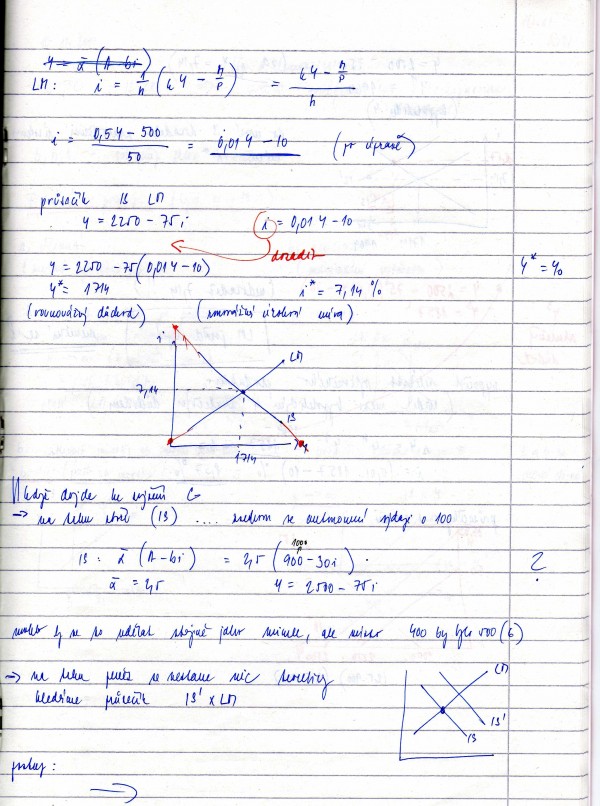 Y = ᾱ (A - bi)
LM: i = 1/h (kY - M/P) = kY - M/P / h
i = 0,5Y - 500 / 50 = 0,01Y - 10 (po úpravě)
průsečík IS LM
Y = 2250 - 75i i = 0,01Y - 10
dosadit
Y = 2250 - 75(0,01Y - 10) Y* = Y0
Y* = 1714 i* = 7,14 %
(rovnovážný důchod) (rovnovážná úroková míra)
i LM
7,14
IS
1714 Y
Když dojde ke zvýšení G
→ na trhu zboží (IS) .... se autonomní výdaje o 100
1000
IS: ᾱ (A - bi) = 2,5 (900 - 30i) .
ᾱ = 2,5 Y = 2500 - 75i ?
by se to udělat stejně jako minule, ale místo 400 by bylo 500 (G)
→ na trhu peněz se nestane nic
hledáme průsečík IS' x LM
LM
IS'
IS
postup:
→